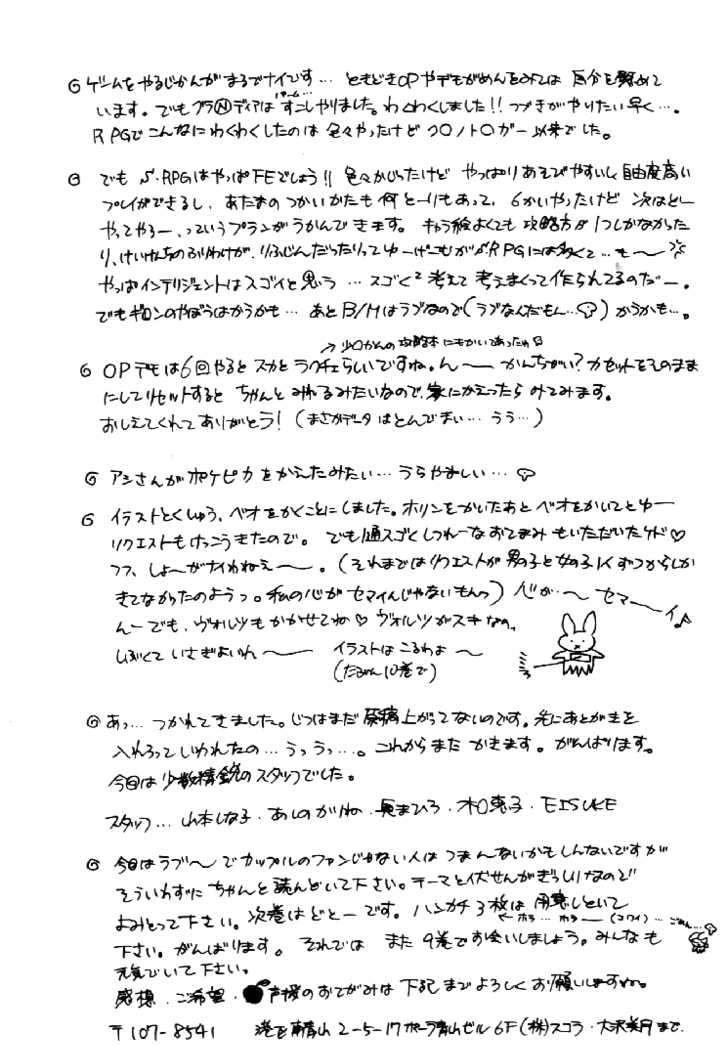 ◎ゲームをやるじかんがまるでナイです… ときどきOPやデモがめんをみては 自分を慰めて
います。でもグラNディアは すこしやりました。わくわくしました!! つづきがやりたい早く…。
RPGで こんなにわくわくしたのは 色々やったけど クロノトリガー以来でした。
◎ でも S・RPGはやっぱFEでしょう!! 色々かじったけど やっぱりあそびやすいし 自由度高い
プレイができるし、あたまの つかいかたも 何とーりもあって、6かいやったけど 次はこー
やってやろー、っていうプランがうかんできます。 キャラ絵よくても 攻略方が1つしかなかった
り、けいけんちのふりわけが、りふじんだったりってゆーゲームがS・RPGには多くて…も〜
やっぱインテリジェントはスゴイと思う …スゴくスゴく考えて 考えまくって作られてるのだー。
でもギレンのやぼうはかうかも… あと B/Mはラブなので(ラブなんだもん…)かうかも…。
→少ロかんの攻略本にもかいてあったわ
◎ OPデモは6回やると スカと ラクチェらしいですね。ん〜 かんちがい? カセットをそのまま
にしてリセットすると ちゃんと みれるみたいなので、家にかえったら みてみます。
おしえてくれて ありがとう!(まさかデータ はとんでまい… うう…)
◎ アシさんが ポケピカ をかったみたい… うらやましい…
◎ イラストとくしゅう、ベオをかくことにしました。ホリンをかいたあと ベオをかいてとゆー
リクエストもけっこうきたので。 でも1通スゴくしつれーなおてがみ もいただいたケド♡
フフ、しょーがナイわねぇ〜。(それまではリクエストが 男の子と女の子1人ずつからしか
きてなかったのようっ。私の心が セマイんじゃないもんっ)心が〜 セマ〜イ♪
んーでも、ヴォルツもかかせてね♡ ヴォルツがスキなの。
しぶくて いさぎよいわ〜 イラストは こるわよ〜
(たぶん10巻で)
◎あっ… つかれてきました。じつはまだ 原稿上がってないのです。先にあとがきを
入れろって いわれたの… うっうっ…。これからまた かきます。がんばります。
今回は 少数精鋭のスタッフでした。
スタッフ… 山本しな子・あしの がね・長まひろ・木口恵子・EISUKE
◎ 今回はラブ〜 でカップルのファンじゃない人は つまんないかもしんないですが
そういわずに ちゃんと 読んどいて下さい。テーマと伏せんがぎっしりなので
よみとって下さい。次巻はどとーです。ハンカチ3枚は 用意しといて
←ホラ… ホラ〜(コワイ)… ごめん…
下さい。がんばります。 それでは また 9巻でお会いしましょう。みんなも
元気でいて下さい。
感想・ご希望・声援のおてがみは 下記までよろしくお願いしますね。
〒107-8541 港区南青山2-5-17ポーラ青山ビル6F(株)スコラ・大沢美月まで